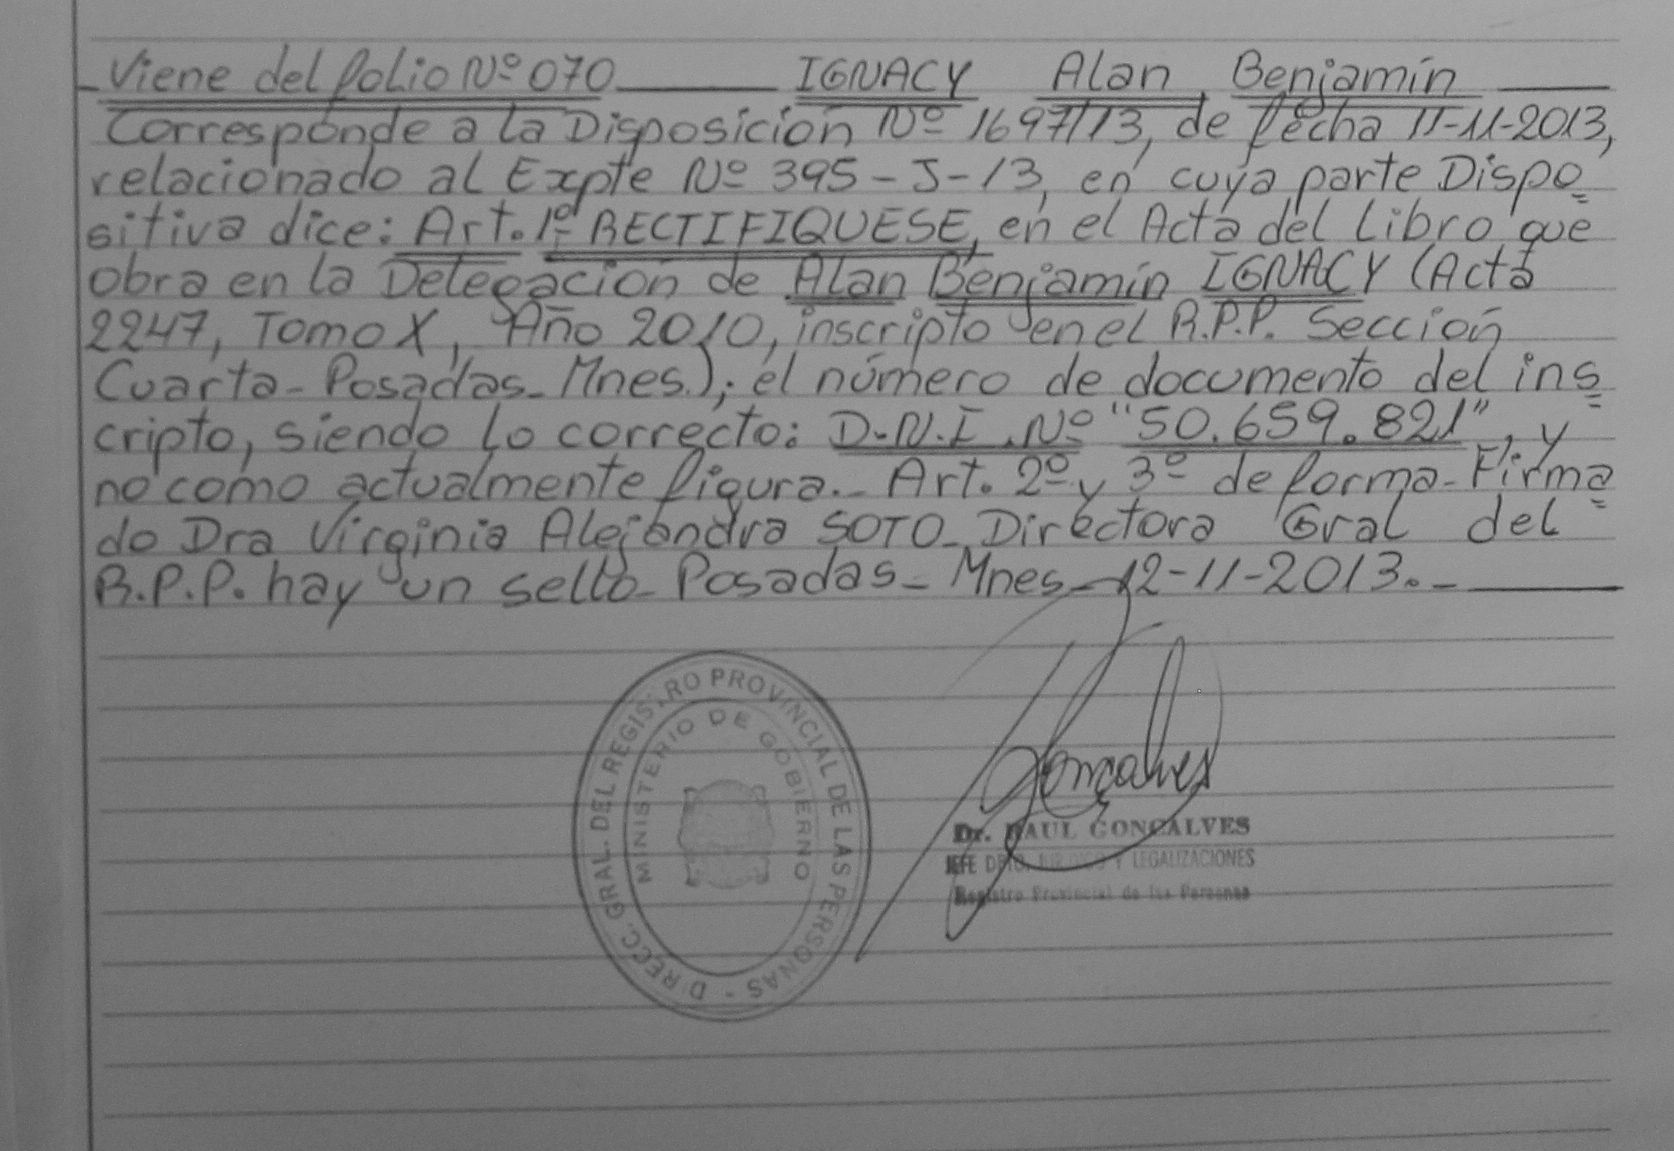 Viene del folio Nº 070 IGNACY Alan Benjamín
Corresponde a la Disposición Nº 1697/13, de fecha 11-11-2013,
relacionado al Expte Nº 395-J-13, en cuya parte Dispo=
sitiva dice: Art. 1º RECTIFIQUESE, en el Acta del Libro que
obra en la Delegación de Alan Benjamín IGNACY (Acta
2247, Tomo X, Año 2010, inscripto en el R.P.P. Sección
Cuarta-Posadas-Mnes.); el número de documento del ins=
cripto, siendo lo correcto: D.N.I. Nº "50.659.821", y
no como actualmente figura.- Art. 2º y 3º de forma-Firma=
do Dra Virginia Alejandra SOTO-Directora Gral del
R.P.P. hay un sello-Posadas-Mnes-12-11-2013.-
DIRECC. GRAL. DEL REGISTRO PROVINCIAL DE LAS PERSONAS -
MINISTERIO DE GOBIERNO
Gonçalves
Dr. RAUL GONÇALVES
JEFE DPTO. JURIDICO Y LEGALIZACIONES
Registro Provincial de las Personas